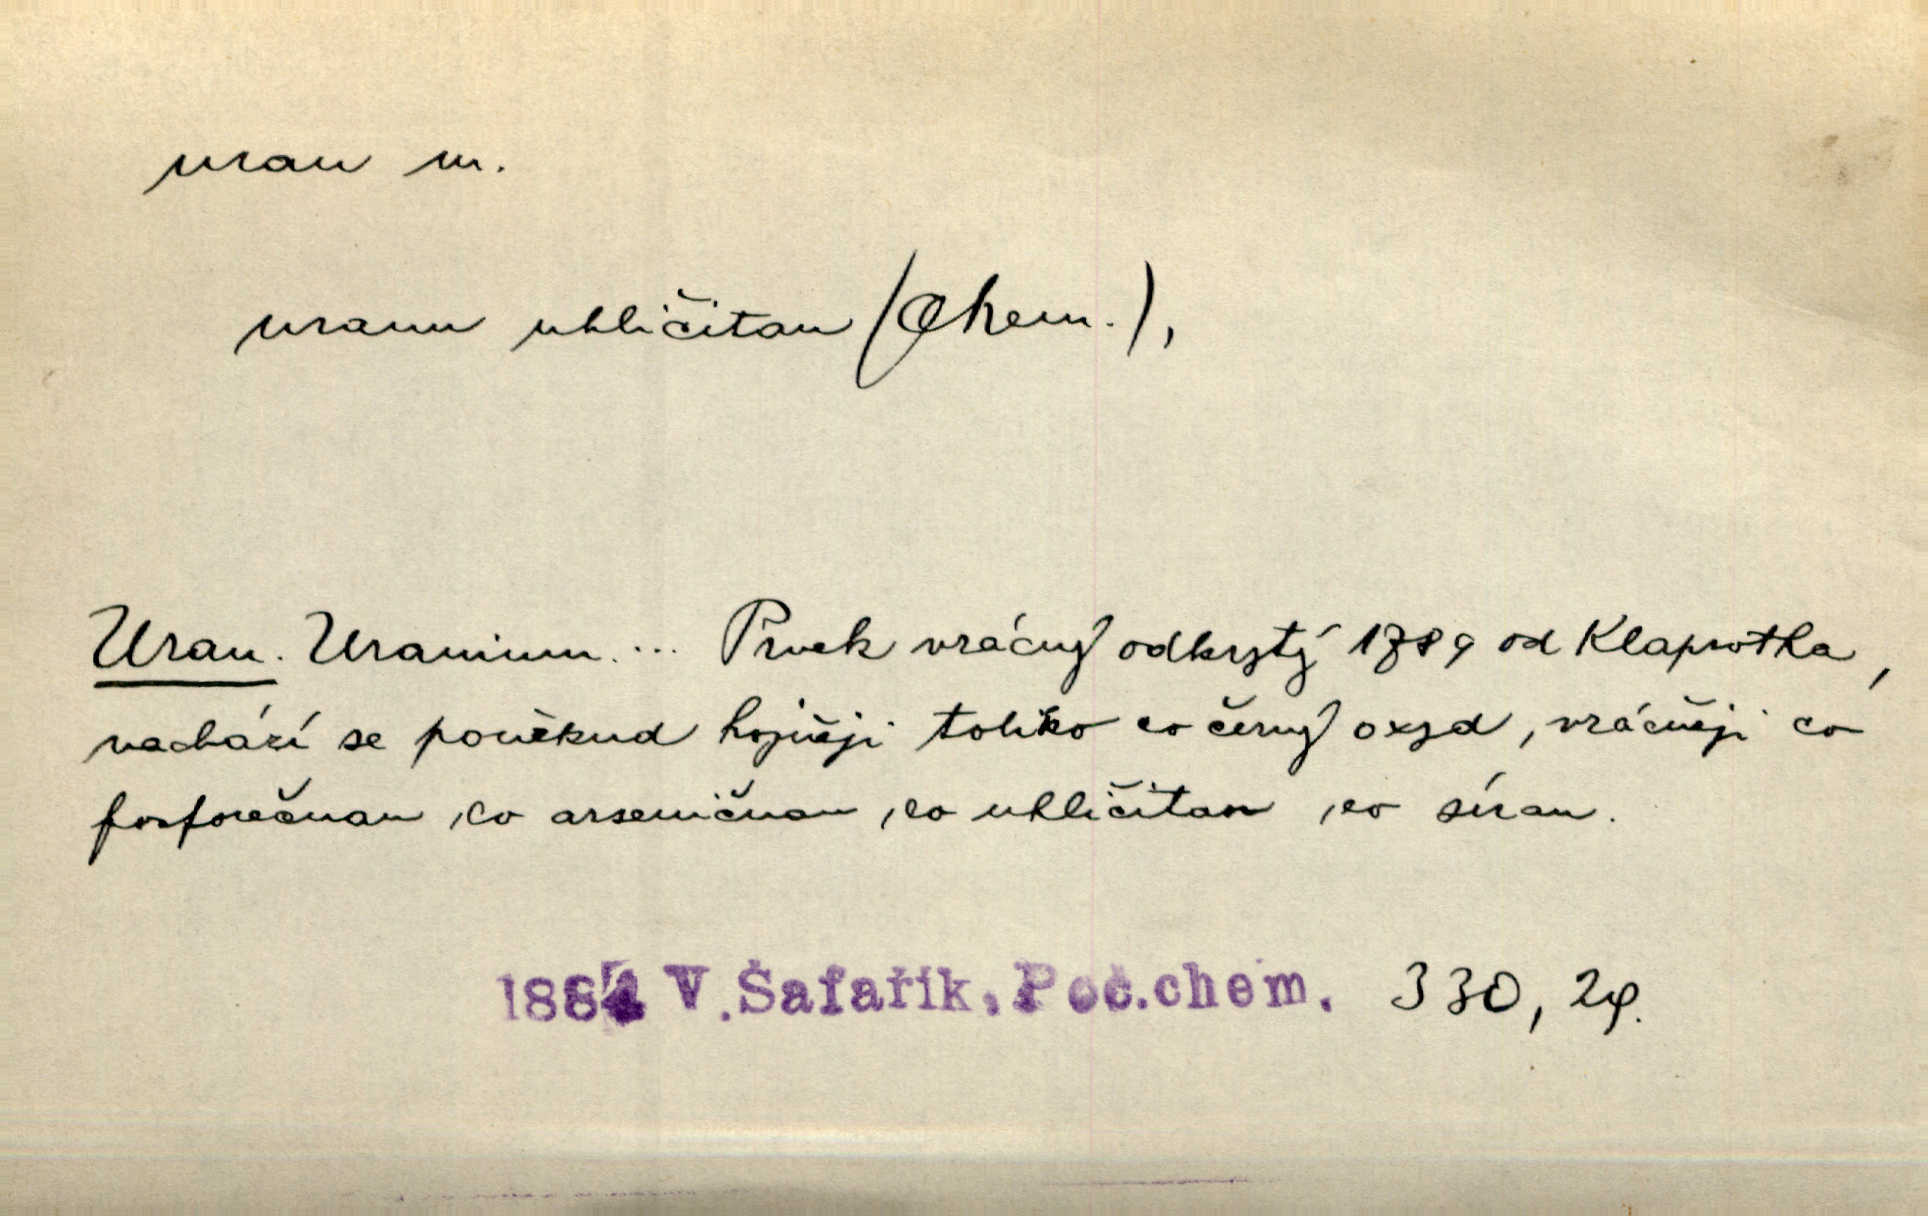 uran m.
uranu uhličitan (Chem.),
Uran. Uranium.... Prvek vzácný odkrytý 1789 od Klaprotha,
nachází se poněkud hojněji toliko co černý oxyd, vzácněji co
fosforečnan, co arseničnan, co uhličitan, co síran.
V. Šafařík, Poč.chem. 330, 2φ.